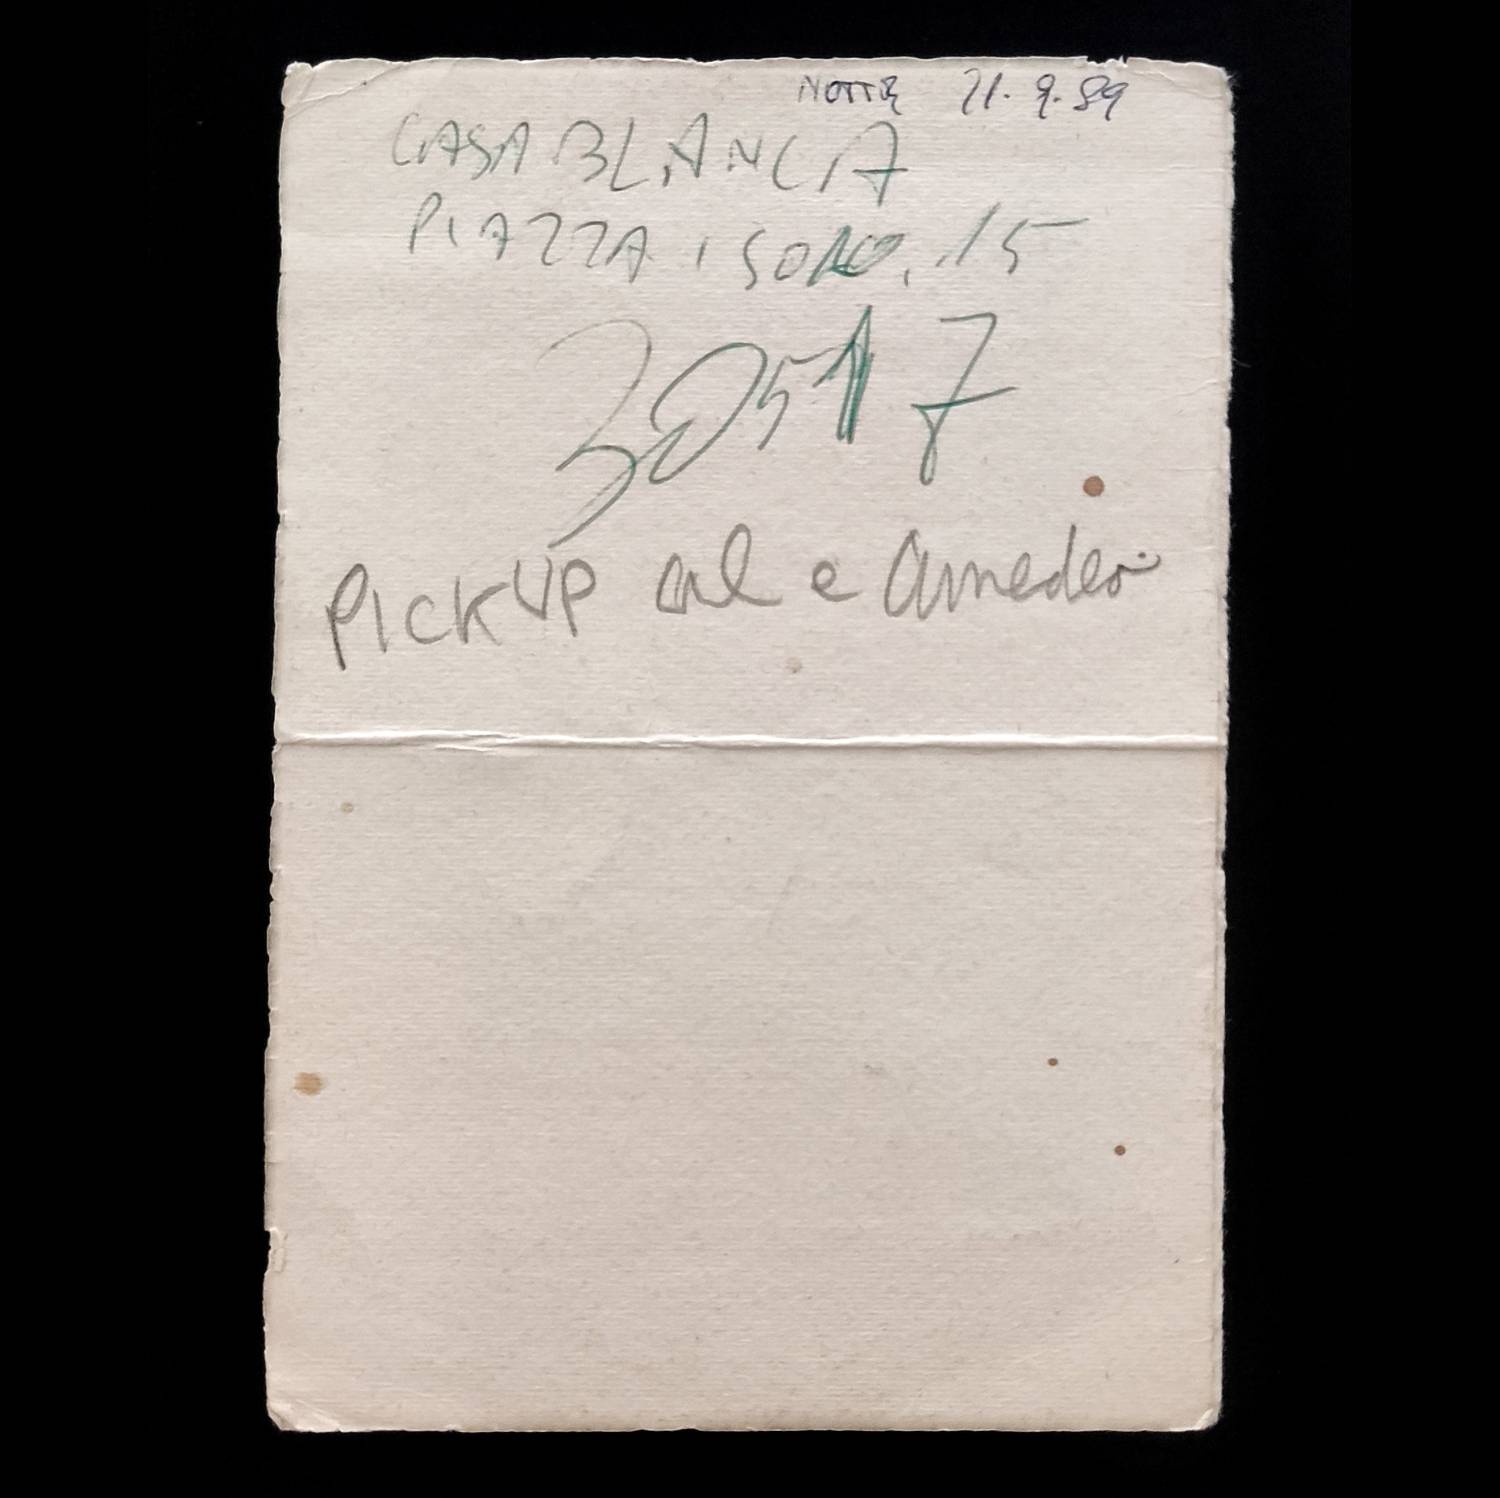 NOTTE 21.9.89
CASABLANCA
PIAZZA ISOLO, 15
30517
PICK UP al e amedeo